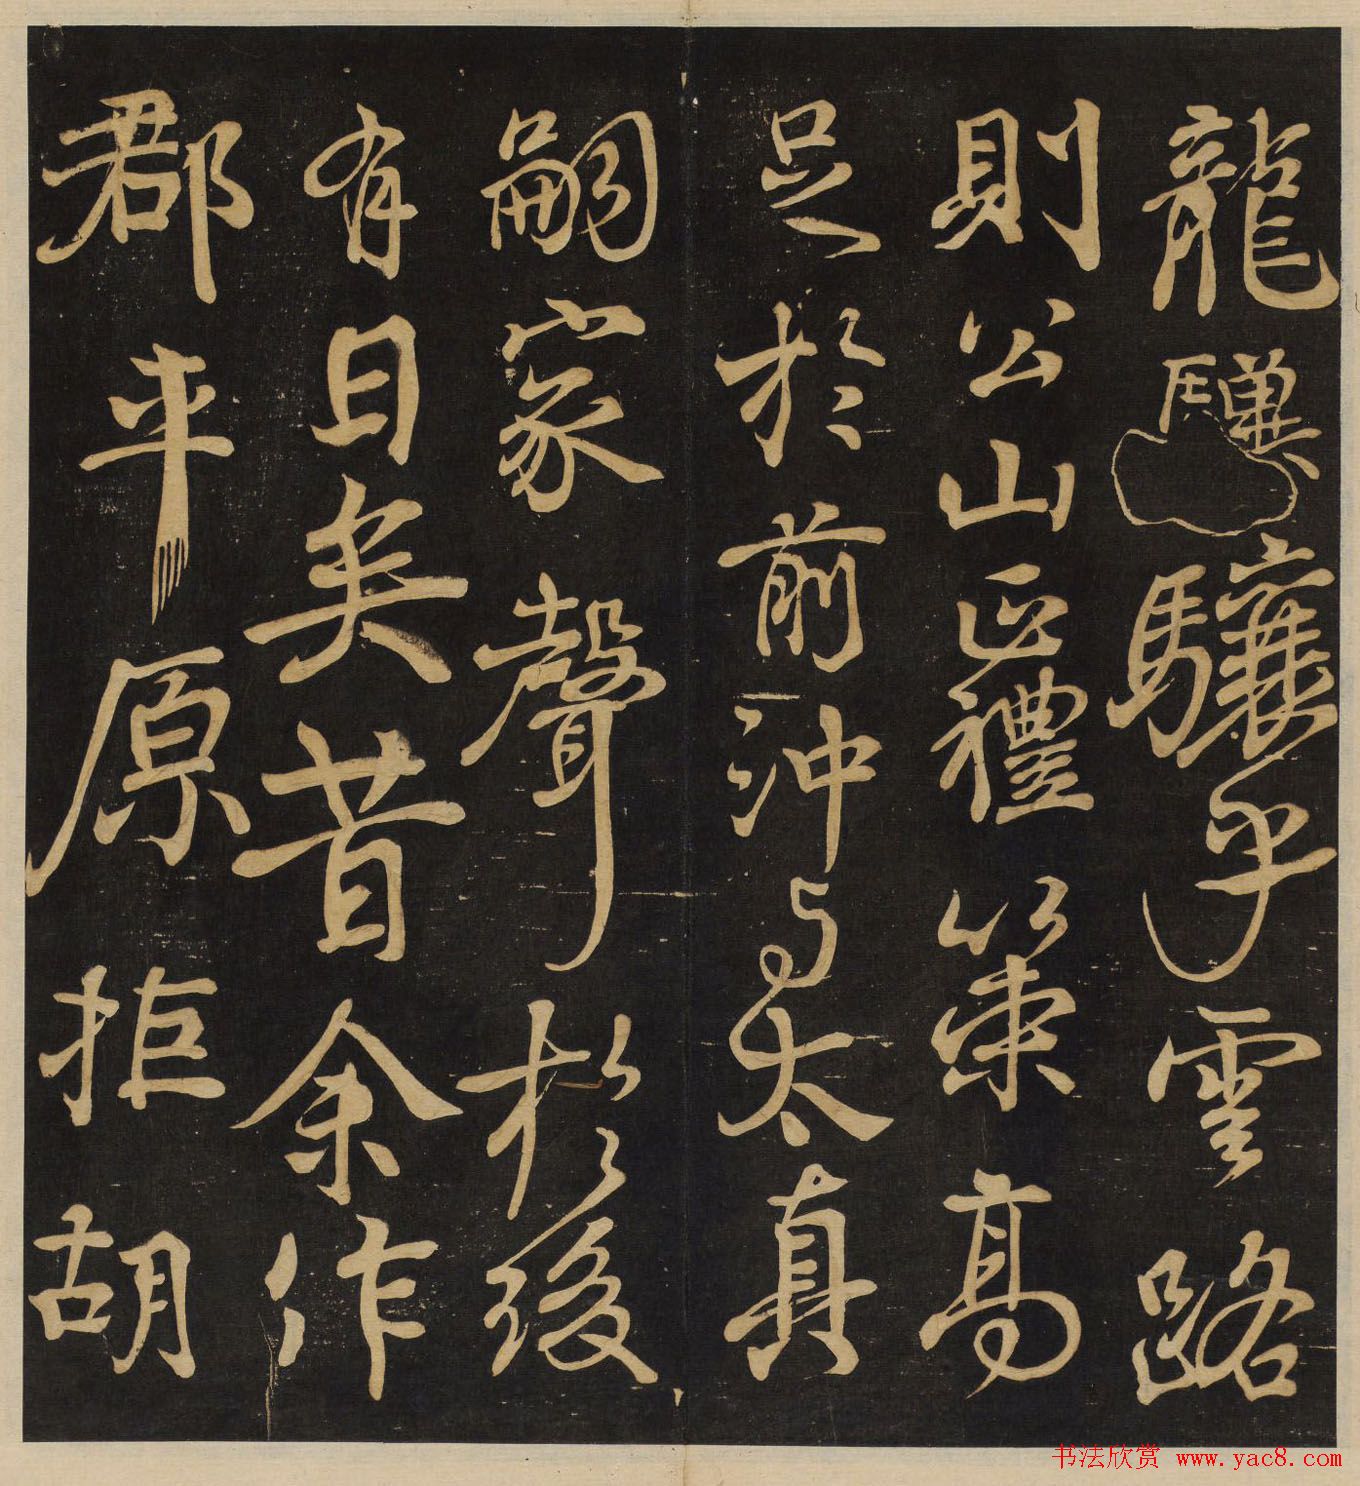 龍驥驤乎雲路
則公山正禮策高
足於前沖与太真
嗣家聲於後
有日矣昔余作
郡平原拒胡
书法欣赏 www.yac8.com